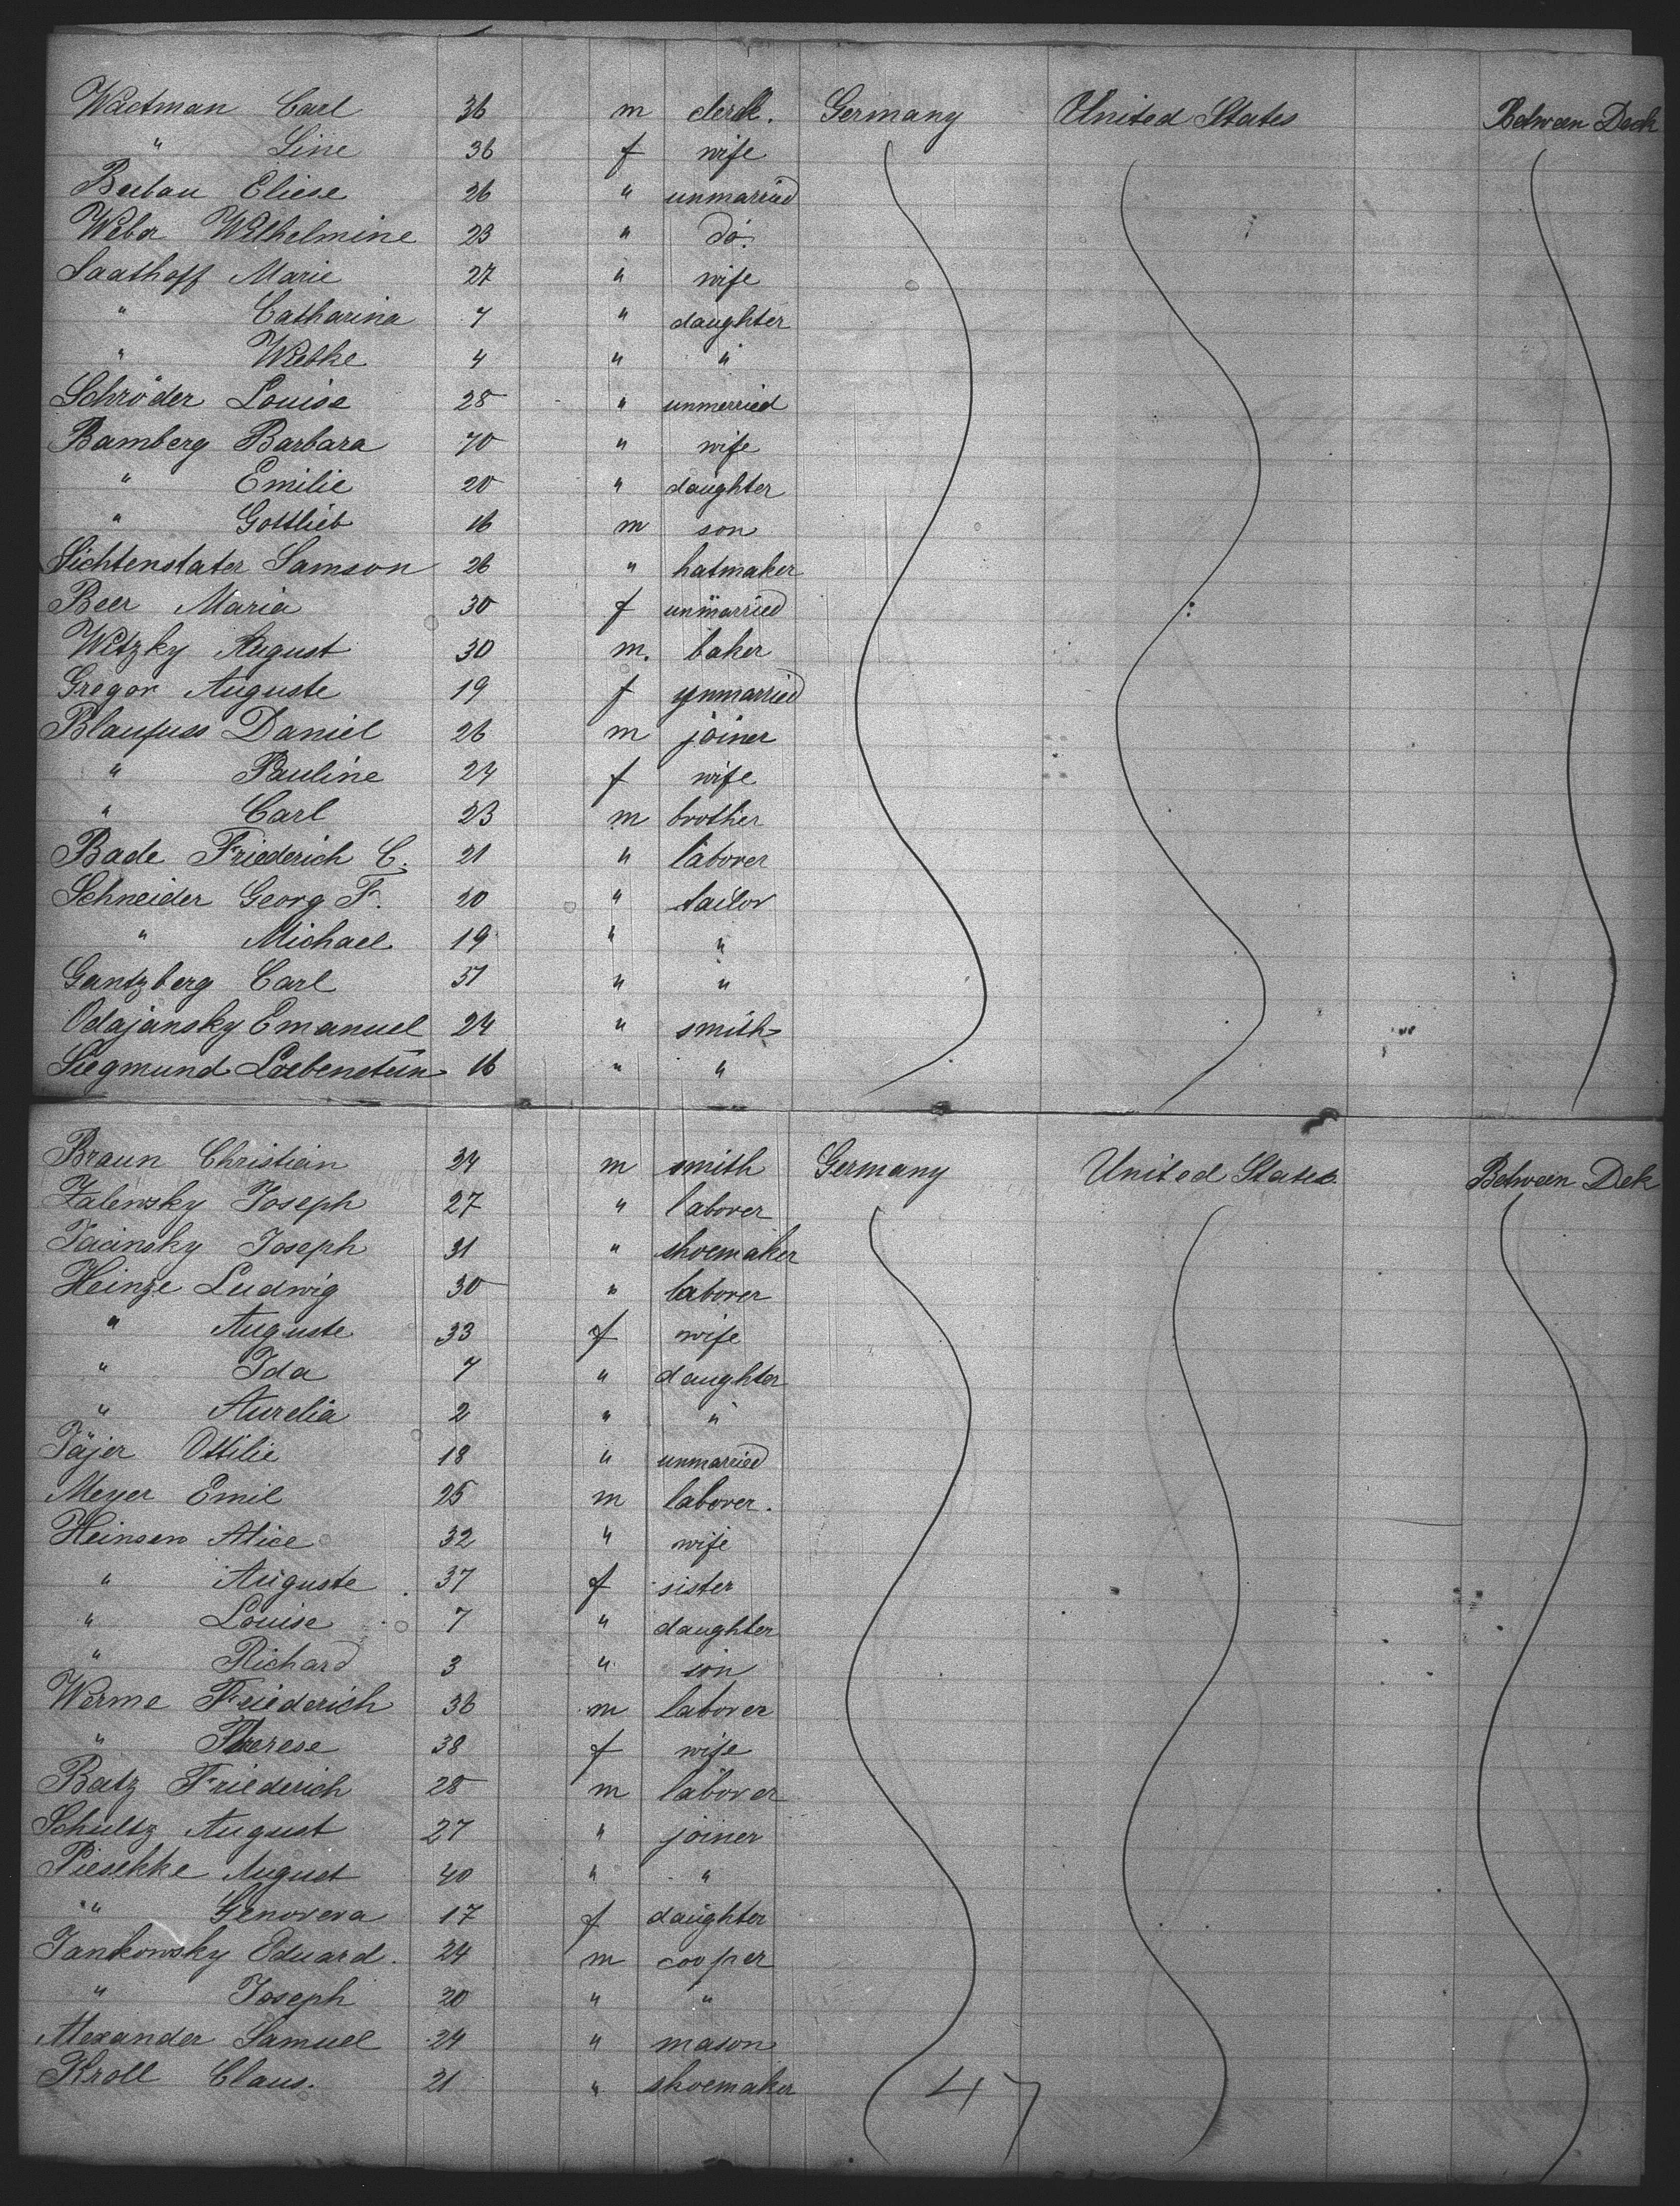 Wactman Carl 36 m clerk. Germany United States Between Deck
" Line 36 f wife
Eliese 26 " unmarried
Weber Wilhelmine 23 " do.
Saathoff Marie 27 " wife
" Catharina 7 " daughter
" Wiebke 4 " "
Schröder Louise 28 " unmerried
Bamberg Barbara 40 " wife
" Emilie 20 " daughter
" Gottlieb 16 m son
Lichtenstater Samson 26 " hatmaker
Beer Maria 30 f unmarried
Witzky August 30 m. baker
Gregor Auguste 19 f unmarried
Blaufuss Daniel 26 m joiner
" Pauline 24 f wife
" Carl 23 m brother
Bade Friederich C. 21 " laborer
Schneider Georg F. 20 " tailor
" Michael 19 " "
Gantzberg Carl 51 " "
Odajansky Emanuel 24 " smith
Siegmund Loebenstein 16 " "
Braun Christian 24 m smith Germany United States Between Dek
Zalewsky Joseph 27 " laborer
Jacinsky Joseph 31 " shoemaker
Heinze Ludwig 30 " laborer
" Auguste 33 f wife
" Ida 7 " daughter
" Aurelia 2 " "
Jäjer Ottilie 18 " unmarried
Meyer Emil 25 m laborer.
Heinsen Alice 32 " wife
" Auguste 37 f sister
" Louise 7 " daughter
" Richard 3 " son
Werme Friederich 36 m laborer
" Therese 38 f wife
Batz Friederich 28 m laborer
Schultz August 27 " joiner
Pieschke August 40 " "
" Genoveva 17 f daughter
Jankowsky Eduard. 24 m cooper
" Joseph 20 " "
Alexander Samuel 24 " mason
Kroll Claus. 21 " shoemaker
47